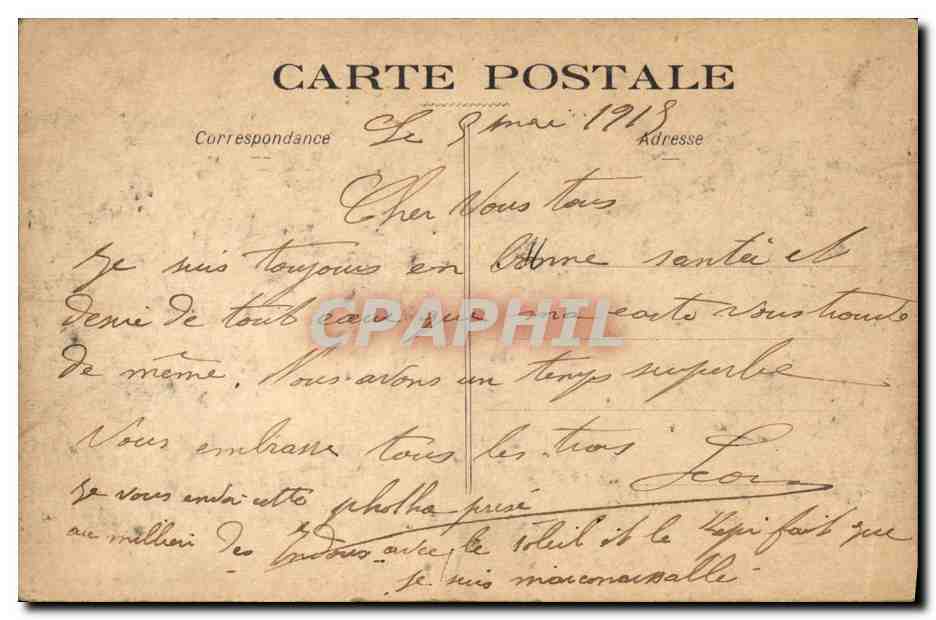 CARTE POSTALE
Correspondance
Adresse
Le 9 mai 1915
Cher Vous tous
Je suis toujours en bonne santée et
desire de tout cœur que ma carte vous trouve
de même. Nous avons un temps superbe
Vous embrasse tous les trois Léon
Je vous envoi cette photha prise
au millieu des avec le soleil et le Képi fait que
je suis
CPAPHIL